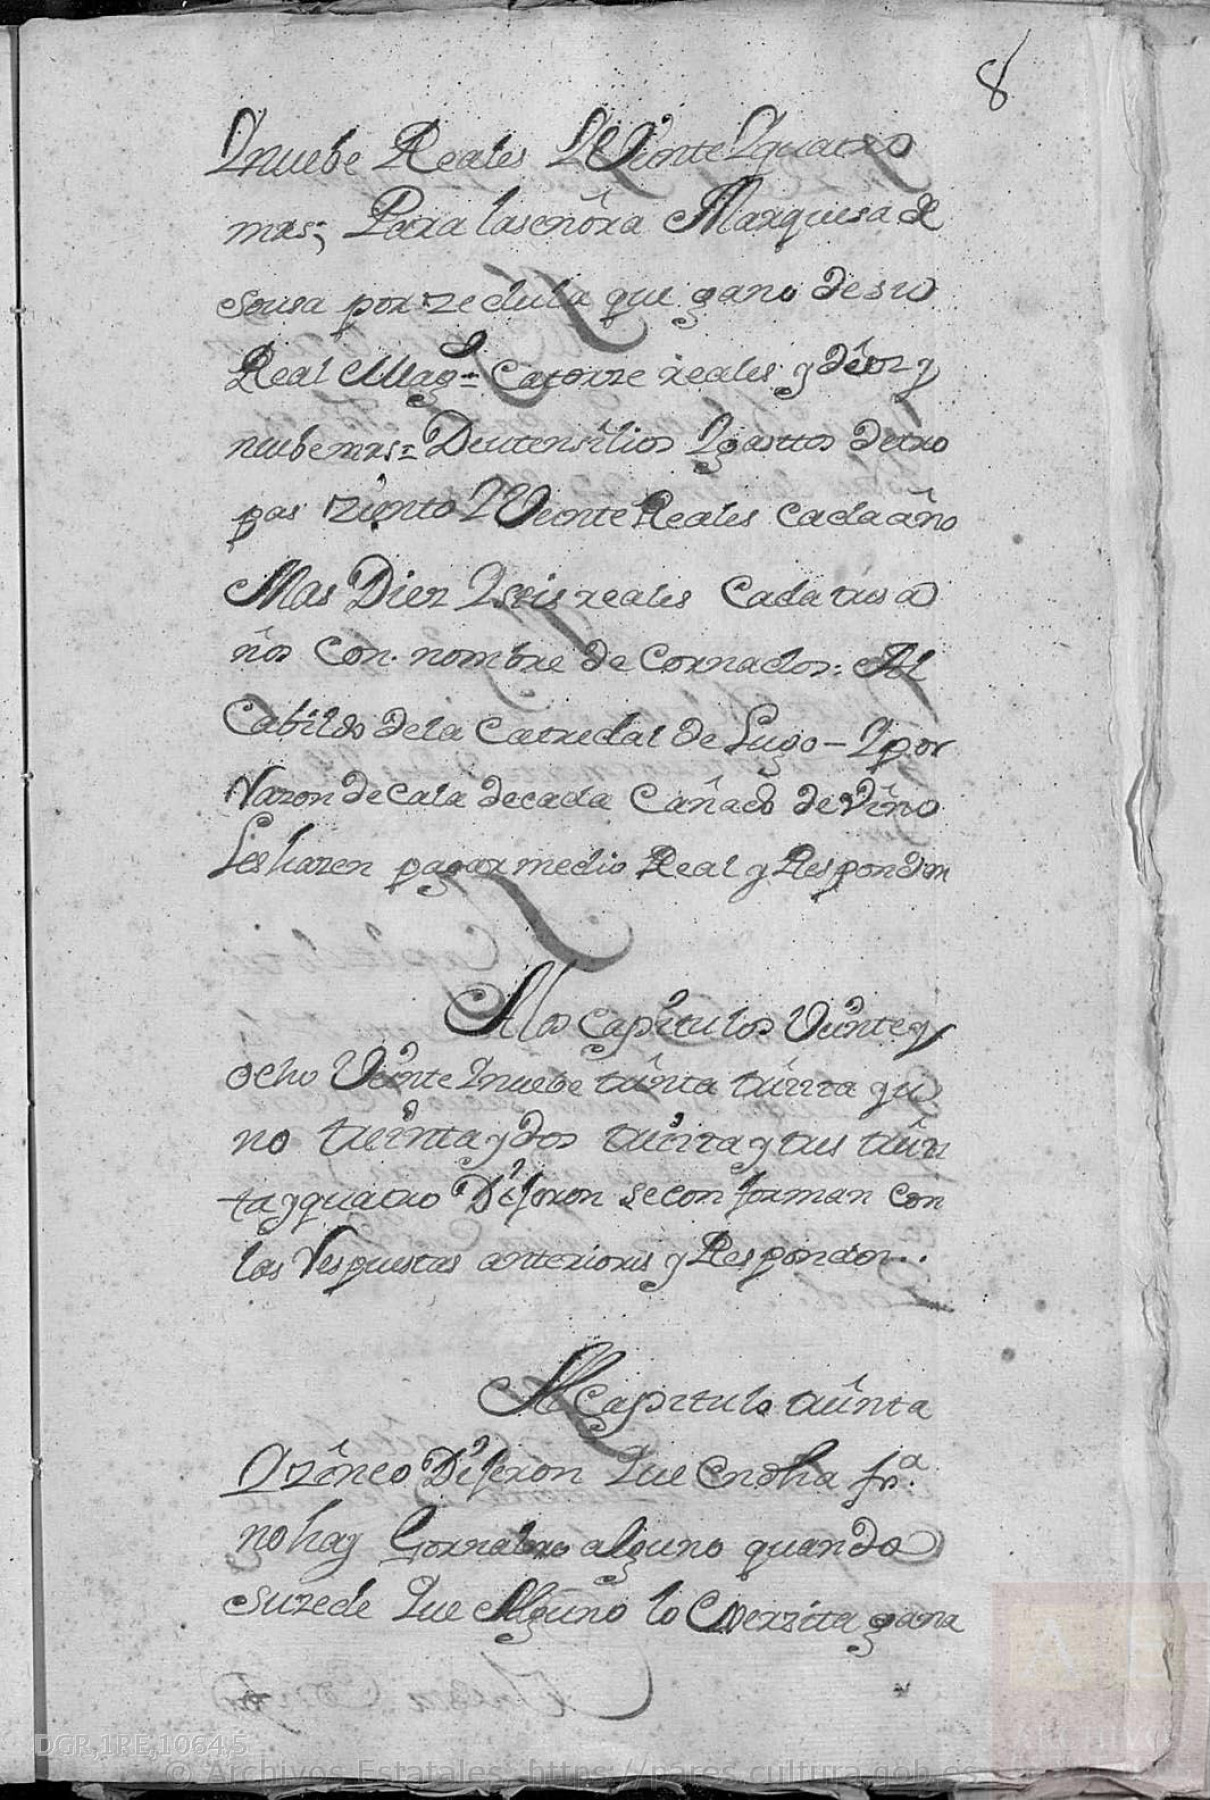 8
Ynuebe Reales YVeinte Yquatro
mrs; Para laseñora Marquesa de
sousa por zedula que gano de su
Real Magd= Catorze reales y diez y
nuebe mrs= Deutensilios Ygasttos detro
pas ziento YVeinte Reales cada año
Mas Diez Yseis reales Cada tres a
ños Con nombre de Cornados: Al
Cabildo dela Catredal de Lugo - Ypor
Razon de Cala decada Cañado de Vino
Leshazen pagar medio Real y Responden
Alos capitulos Veinte y
ocho Veinte Ynuebe treinta treinta yu
no treinta y dos treinta y tres trein
ta y quatro Dijeron se conforman Con
las Respuestas anteriores y Responden..
Al Capitulo treinta
Yzinco Dijeron Que en dha fra.
no hay Jornalero alguno quando
suzede Que Alguno lo Nezesita gana
DGR,1RE,10645
© Archivos Estatales, https://pares.cultura.gob.es